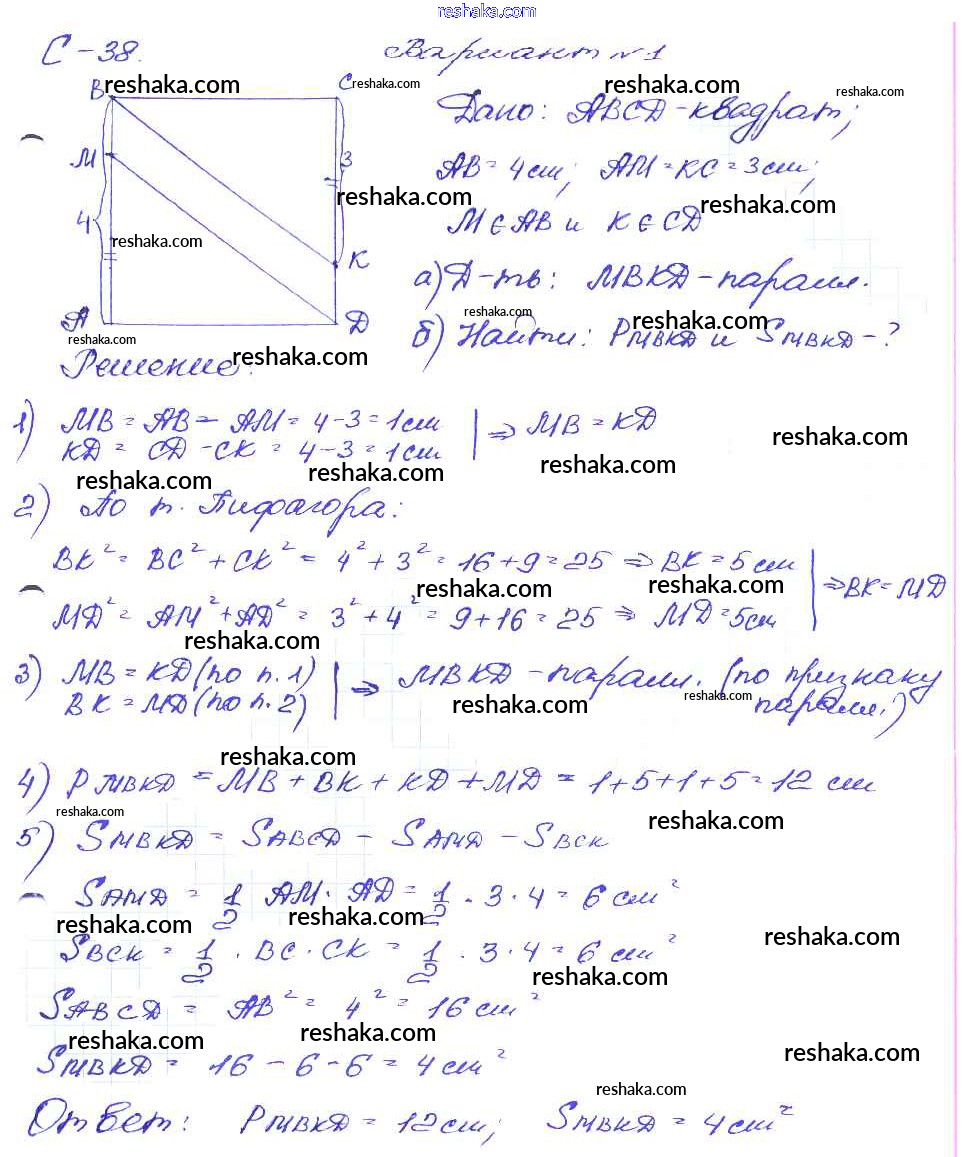 reshaka.com
С-38. Вариант №1
reshaka.com reshaka.com reshaka.com reshaka.com
B C
M 3
4 K
A D
Дано: ABCD-квадрат;
AB = 4 см; AM = KC = 3 см;
reshaka.com reshaka.com
M ∈ AB и K ∈ CD
reshaka.com
а) Д-ть: MBKD - паралл.
reshaka.com reshaka.com
б) Найти: P MBKD и S MBKD - ?
reshaka.com reshaka.com
Решение:
1) MB = AB - AM = 4 - 3 = 1 см
KD = CD - CK = 4 - 3 = 1 см | ⇒ MB = KD
reshaka.com
reshaka.com reshaka.com reshaka.com
2) По т. Пифагора:
BK² = BC² + CK² = 4² + 3² = 16 + 9 = 25 ⇒ BK = 5 см
reshaka.com reshaka.com
MD² = AM² + AD² = 3² + 4² = 9 + 16 = 25 ⇒ MD = 5 см | ⇒ BK = MD
reshaka.com
3) MB = KD (по п. 1)
BK = MD (по п. 2) | ⇒ MBKD - паралл. (по признаку
паралл.)
reshaka.com reshaka.com
reshaka.com
4) P MBKD = MB + BK + KD + MD = 1 + 5 + 1 + 5 = 12 см
reshaka.com reshaka.com
5) S MBKD = S ABCD - S AMD - S BCK
S AMD = 1/2 AM · AD = 1/2 · 3 · 4 = 6 см²
reshaka.com reshaka.com reshaka.com
S BCK = 1/2 · BC · CK = 1/2 · 3 · 4 = 6 см²
reshaka.com
S ABCD = AB² = 4² = 16 см²
reshaka.com reshaka.com reshaka.com
S MBKD = 16 - 6 - 6 = 4 см²
reshaka.com
Ответ: P MBKD = 12 см; S MBKD = 4 см²